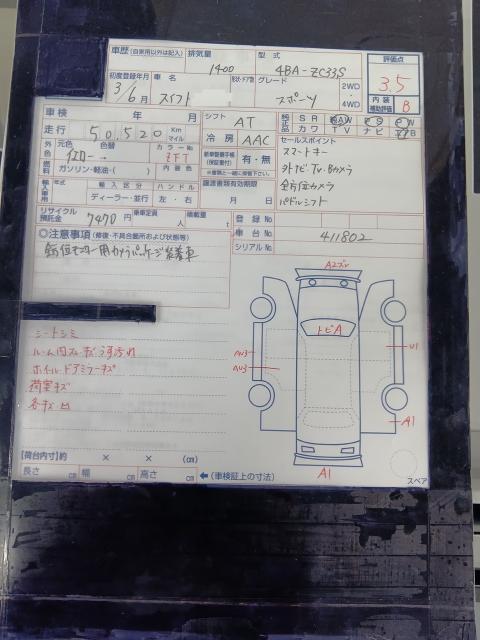 車歴(自家用以外は記入) 排気量 型式 評価点
1400 4BA-ZC33S 3.5
初度登録年月 車名 グレード 2WD・4WD
3/6月 スイフト スポーツ
内装補助評価 B
車検 年 月 シフト AT 純正品 SR AW PS PW
走行 50,520 Km マイル 冷房 AAC カワ TV ナビ
外色 元色 色替 カラーNo. 有・無 セールスポイント
イエロー ZFT スマートキー
燃料 ガソリン・軽油・( ) 内装色 外ナビ・TV・Bカメラ
輸入車用 年式 輸入区分 ハンドル 譲渡書類有効期限 全方位カメラ
ディーラー・並行 左・右 月 日 パドルシフト
リサイクル預託金 7470円 乗車定員 人 積載量 t 登録No
◎注意事項(修復・不具合箇所および状態等) 車台No 411802
全方位モニター用カメラパッケージ装着車 シリアルNo
A2
トビA
シートシミ
ホイールドアミラーキズ
荷室キズ
各キズ凹
AU3
AU3
U1
A1
A1
【荷台内寸】約 × × (cm)
長さ cm 幅 cm 高さ cm ←(車検証上の寸法) スペア